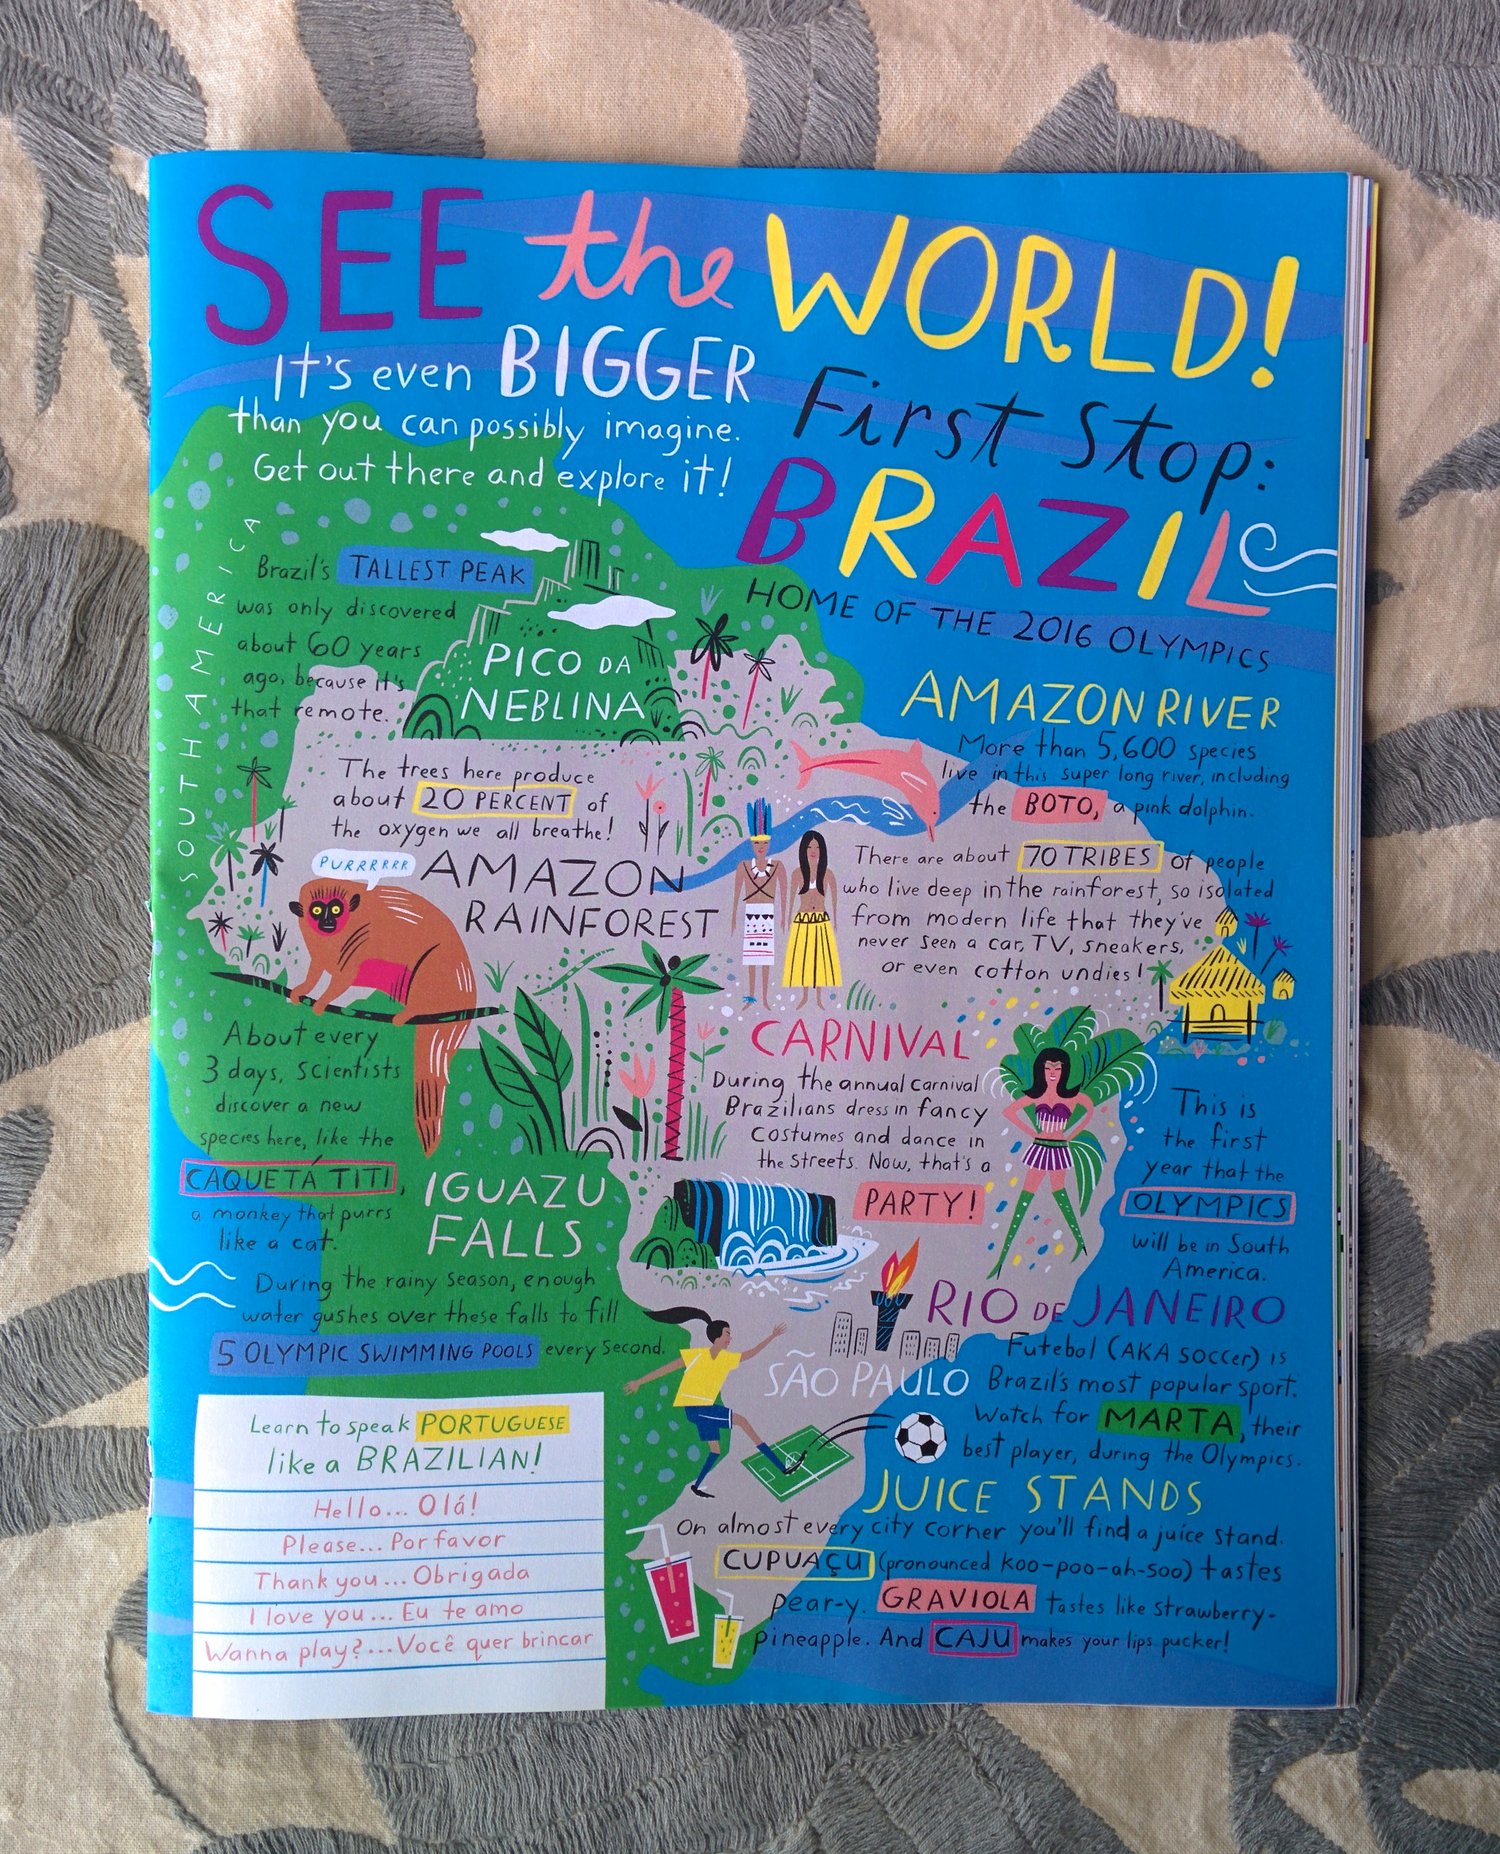 SEE the WORLD!
It's even BIGGER
than you can possibly imagine.
Get out there and explore it!
First Stop:
BRAZIL
HOME OF THE 2016 OLYMPICS
SOUTH AMERICA
Brazil's TALLEST PEAK
was only discovered
about 60 years
ago, because it's
that remote.
PICO DA
NEBLINA
AMAZON RIVER
More than 5,600 species
live in this super long river, including
the BOTO, a pink dolphin.
The trees here produce
about 20 PERCENT of
the oxygen we all breathe!
PURRRRRR
AMAZON
RAINFOREST
There are about 70 TRIBES of people
who live deep in the rainforest, so isolated
from modern life that they've
never seen a car, TV, sneakers,
or even cotton undies!
About every
3 days, scientists
discover a new
species here, like the
CAQUETÁ TITI,
a monkey that purrs
like a cat.
CARNIVAL
During the annual carnival
Brazilians dress in fancy
costumes and dance in
the streets. Now, that's a
PARTY!
This is
the first
year that the
OLYMPICS
will be in South
America.
IGUAZU
FALLS
During the rainy season, enough
water gushes over these falls to fill
5 OLYMPIC SWIMMING POOLS every second.
RIO DE JANEIRO
SÃO PAULO
Futebol (AKA soccer) is
Brazil's most popular sport.
Watch for MARTA, their
best player, during the Olympics.
JUICE STANDS
On almost every city corner you'll find a juice stand.
CUPUAÇU (pronounced koo-poo-ah-soo) tastes
pear-y. GRAVIOLA tastes like strawberry-
pineapple. And CAJU makes your lips pucker!
Learn to speak PORTUGUESE
like a BRAZILIAN!
Hello... Olá!
Please... Por favor
Thank you... Obrigada
I love you... Eu te amo
Wanna play?... Você quer brincar